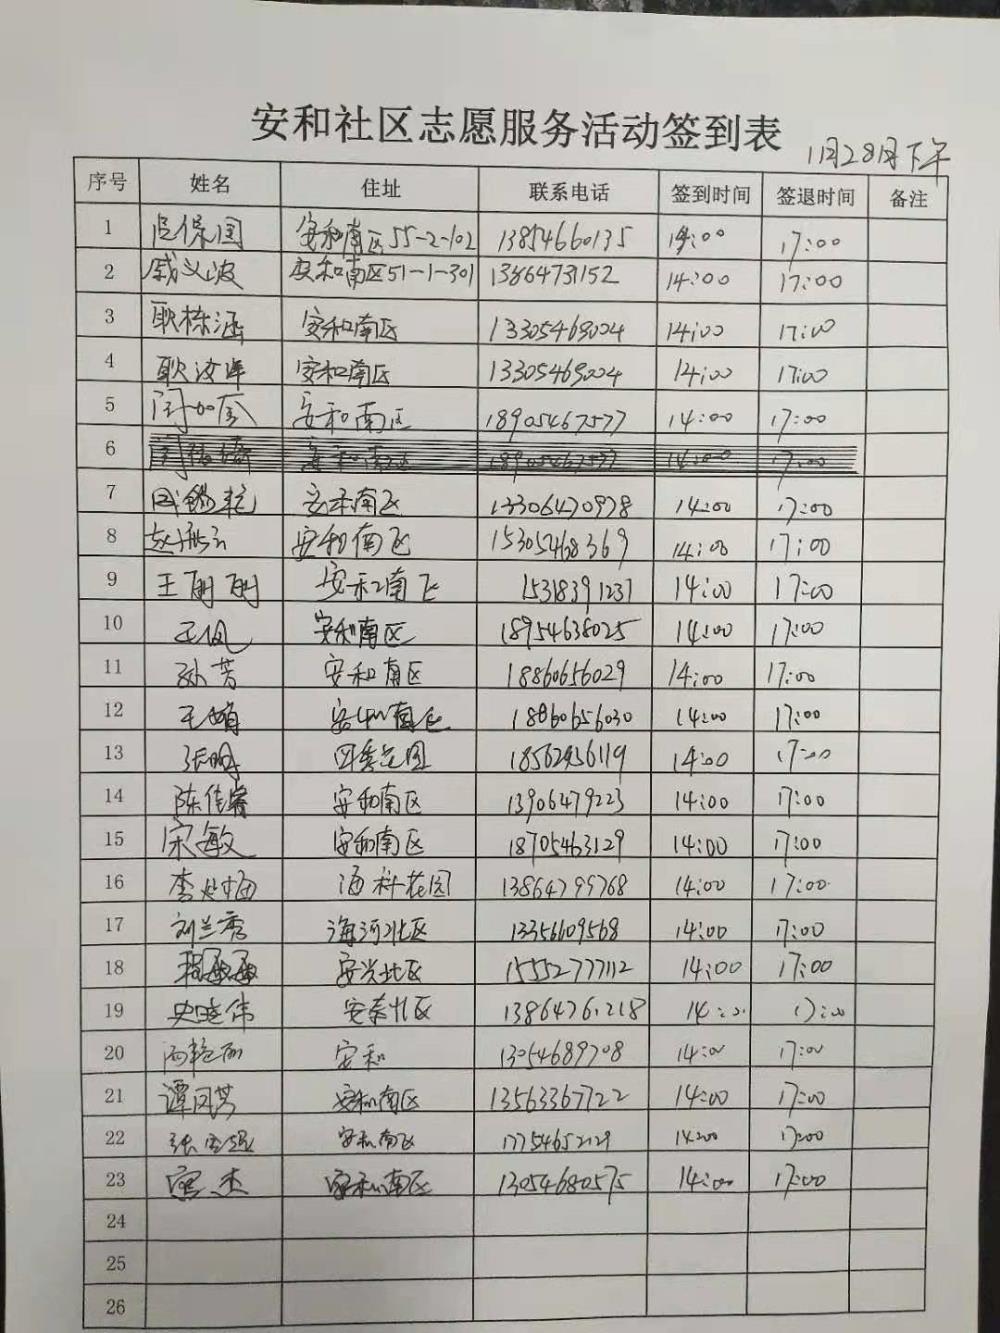 安和社区志愿服务活动签到表
11月28日下午
序号 姓名 住址 联系电话 签到时间 签退时间 备注
1 保国 安和南区55-2-102 13854660135 14:00 17:00
2 戚义波 安和南区51-1-301 13864731152 14:00 17:00
3 耿栋涵 安和南区 13305469004 14:00 17:00
4 耿汝 安和南区 13305469004 14:00 17:00
5 闫加 安和南区 18905467577 14:00 17:00
6
7 安和南区 13306470978 14:00 17:00
8 赵 安和南区 15305468369 14:00 17:00
9 王丽丽 安和南区 15318391231 14:00 17:00
10 王 安和南区 18954638025 14:00 17:00
11 孙芳 安和南区 18860656029 14:00 17:00
12 王娟 安和南区 18860656030 14:00 17:00
13 张明 四季花园 18562936119 14:00 17:00
14 陈佳睿 安和南区 13906479223 14:00 17:00
15 宋敏 安和南区 18705463129 14:00 17:00
16 李 海科花园 13864799768 14:00 17:00
17 刘兰秀 海河北区 13356609568 14:00 17:00
18 安兴北区 15552777112 14:00 17:00
19 史晓伟 安泰北区 14:00 17:00
20 安和 13054689708 14:00 17:00
21 谭同芳 安和南区 13563367122 14:00 17:00
22 张 安和南区 17754652129 14:00 17:00
23 杰 安和南区 13054680575 14:00 17:00
24
25
26